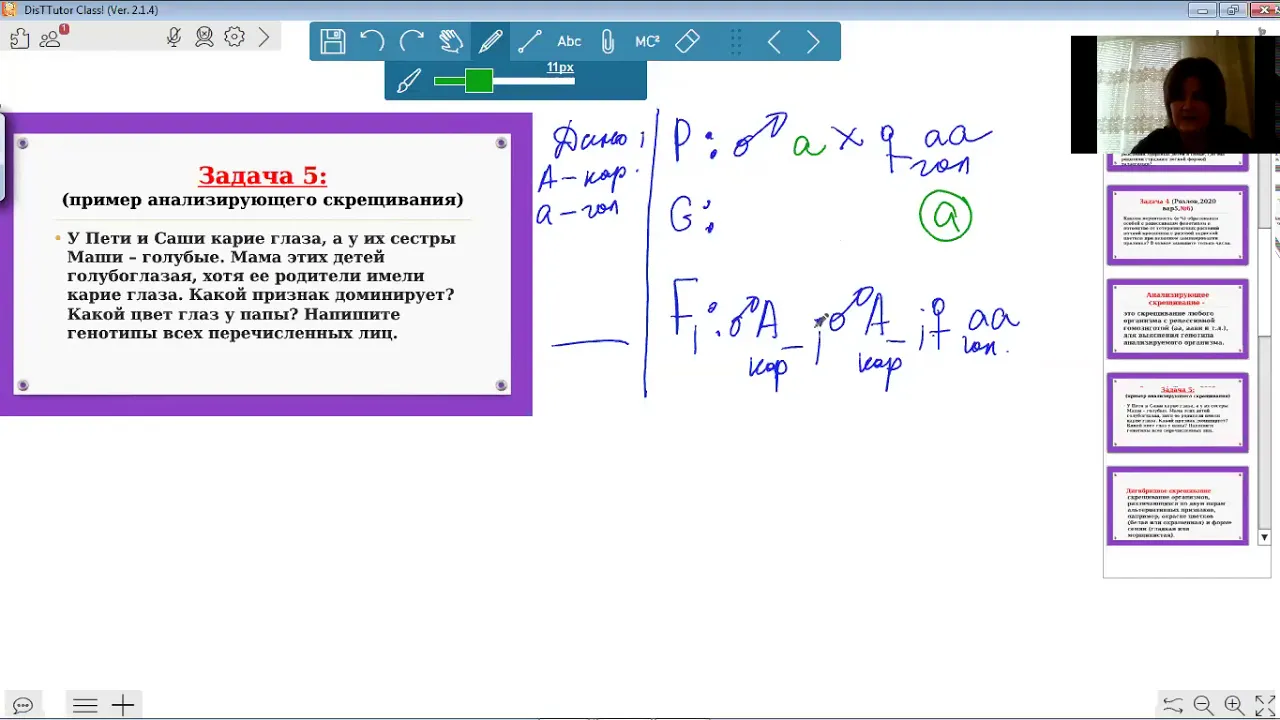 DisTTutor Class! (Ver. 2.1.4)
1
Abc
MC²
11px
Задача 5:
(пример анализирующего скрещивания)
• У Пети и Саши карие глаза, а у их сестры
Маши – голубые. Мама этих детей
голубоглазая, хотя ее родители имели
карие глаза. Какой признак доминирует?
Какой цвет глаз у папы? Напишите
генотипы всех перечисленных лиц.
Дано:
А – кар.
а – гол
P: ♂ a × ♀ aa
гол
G: a
F₁: ♂ A_ ; ♂ A_ ; ♀ aa
кар кар гол.
Задача 4 (Рохлов,2020
вар5,№6)
Анализирующее
скрещивание -
это скрещивание любого
организма с рецессивной
гомозиготой (аа, аавв и т.д.),
для выяснения генотипа
анализируемого организма.
Задача 5:
(пример анализирующего скрещивания)
У Пети и Саши карие глаза, а у их сестры
Маши – голубые. Мама этих детей
голубоглазая, хотя ее родители имели
карие глаза. Какой признак доминирует?
Какой цвет глаз у папы? Напишите
генотипы всех перечисленных лиц.
Дигибридное скрещивание
скрещивание организмов,
различающихся по двум парам
альтернативных признаков,
например, окраске цветков
(белая или окрашенная) и форме
семян (гладкая или
морщинистая).